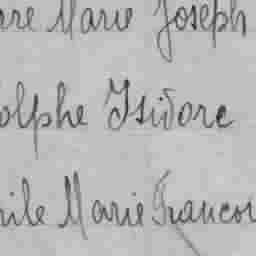 rre Marie Joseph
olphe Isidore
ile Marie Francoi